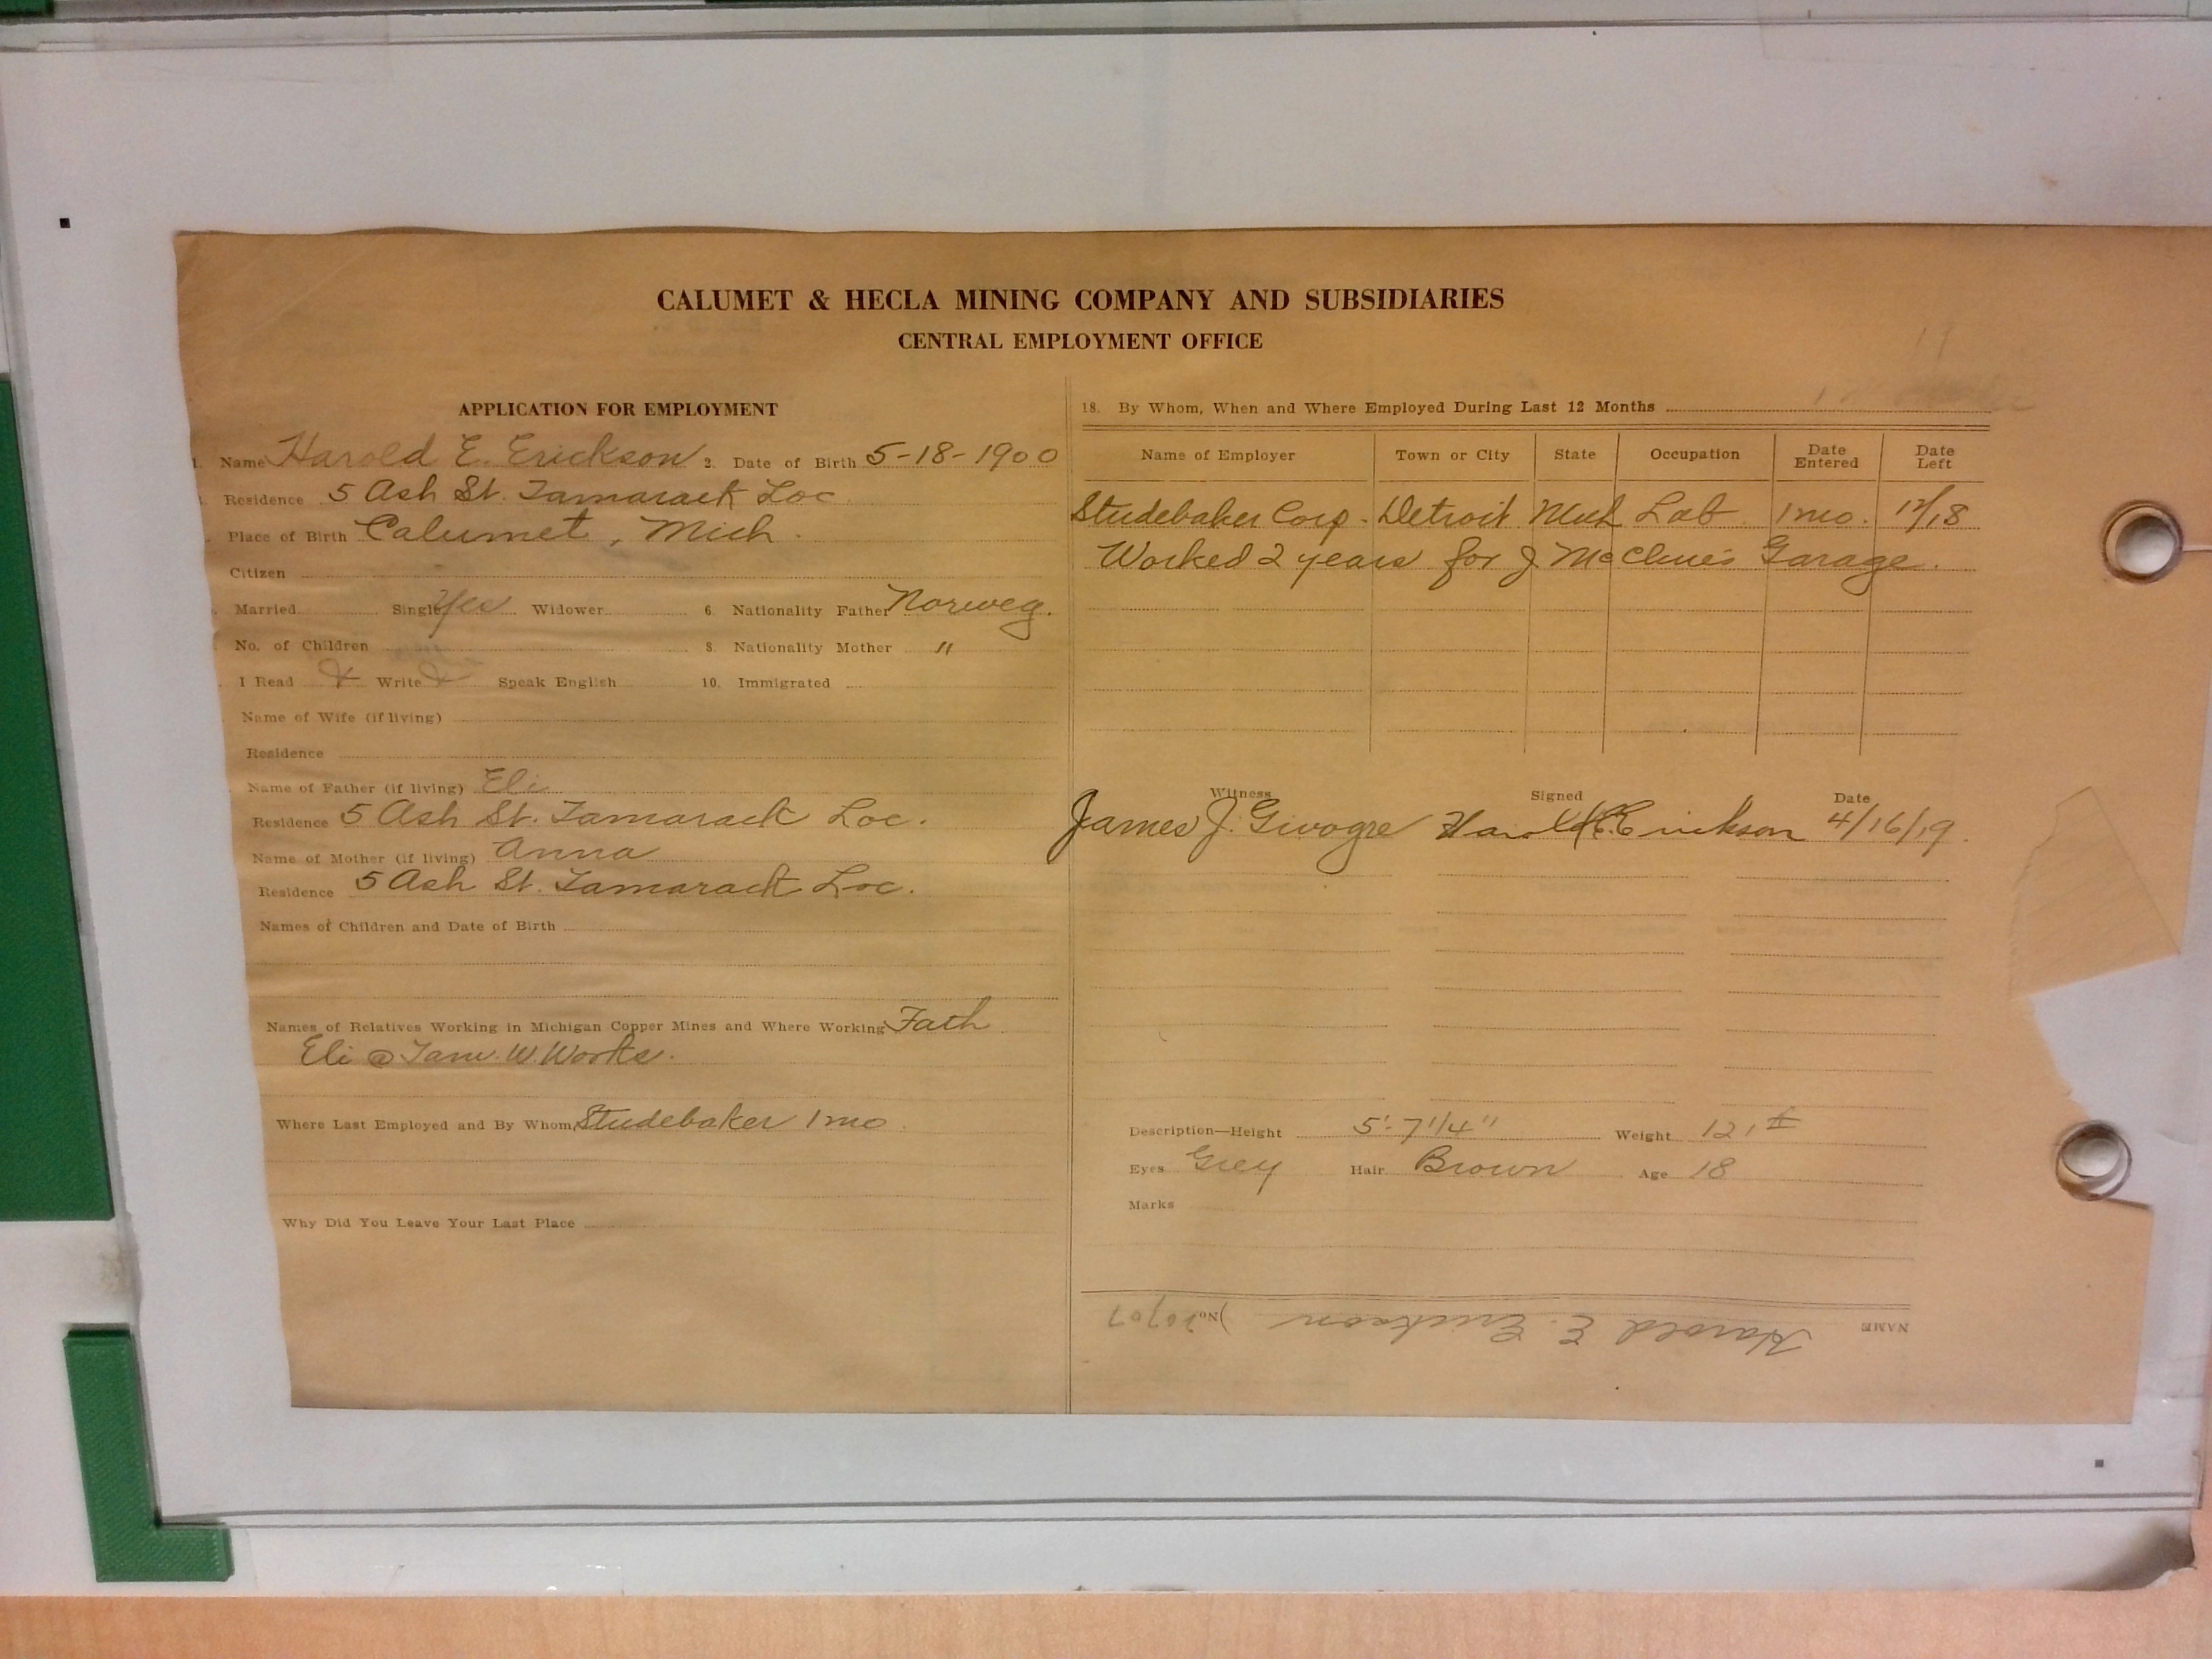 CALUMET & HECLA MINING COMPANY AND SUBSIDIARIES
CENTRAL EMPLOYMENT OFFICE
APPLICATION FOR EMPLOYMENT
1. Name Harold E. Erickson 2. Date of Birth 5-18-1900
Residence 5 Ash St. Tamarack Loc.
Place of Birth Calumet, Mich.
Citizen
Married Single Yes Widower 6. Nationality Father Norweg.
No. of Children 8. Nationality Mother "
I Read Write Speak English 10. Immigrated
Name of Wife (if living)
Residence
Name of Father (if living) Eli
Residence 5 Ash St. Tamarack Loc.
Name of Mother (if living) Anna
Residence 5 Ash St. Tamarack Loc.
Names of Children and Date of Birth
Names of Relatives Working in Michigan Copper Mines and Where Working Fath
Eli @ Tam. W. Works.
Where Last Employed and By Whom Studebaker 1 mo
Why Did You Leave Your Last Place
18. By Whom, When and Where Employed During Last 12 Months
Name of Employer Town or City State Occupation Date Entered Date Left
Studebaker Corp. Detroit Mich Lab. 1 mo. 12/18
Worked 2 years for J. McClure's Garage.
Witness Signed Date
James J. Harold E. Erickson 4/16/19
Description—Height 5'-7 1/4" Weight 121 #
Eyes Grey Hair Brown Age 18
Marks
NAME Harold E. Erickson No.